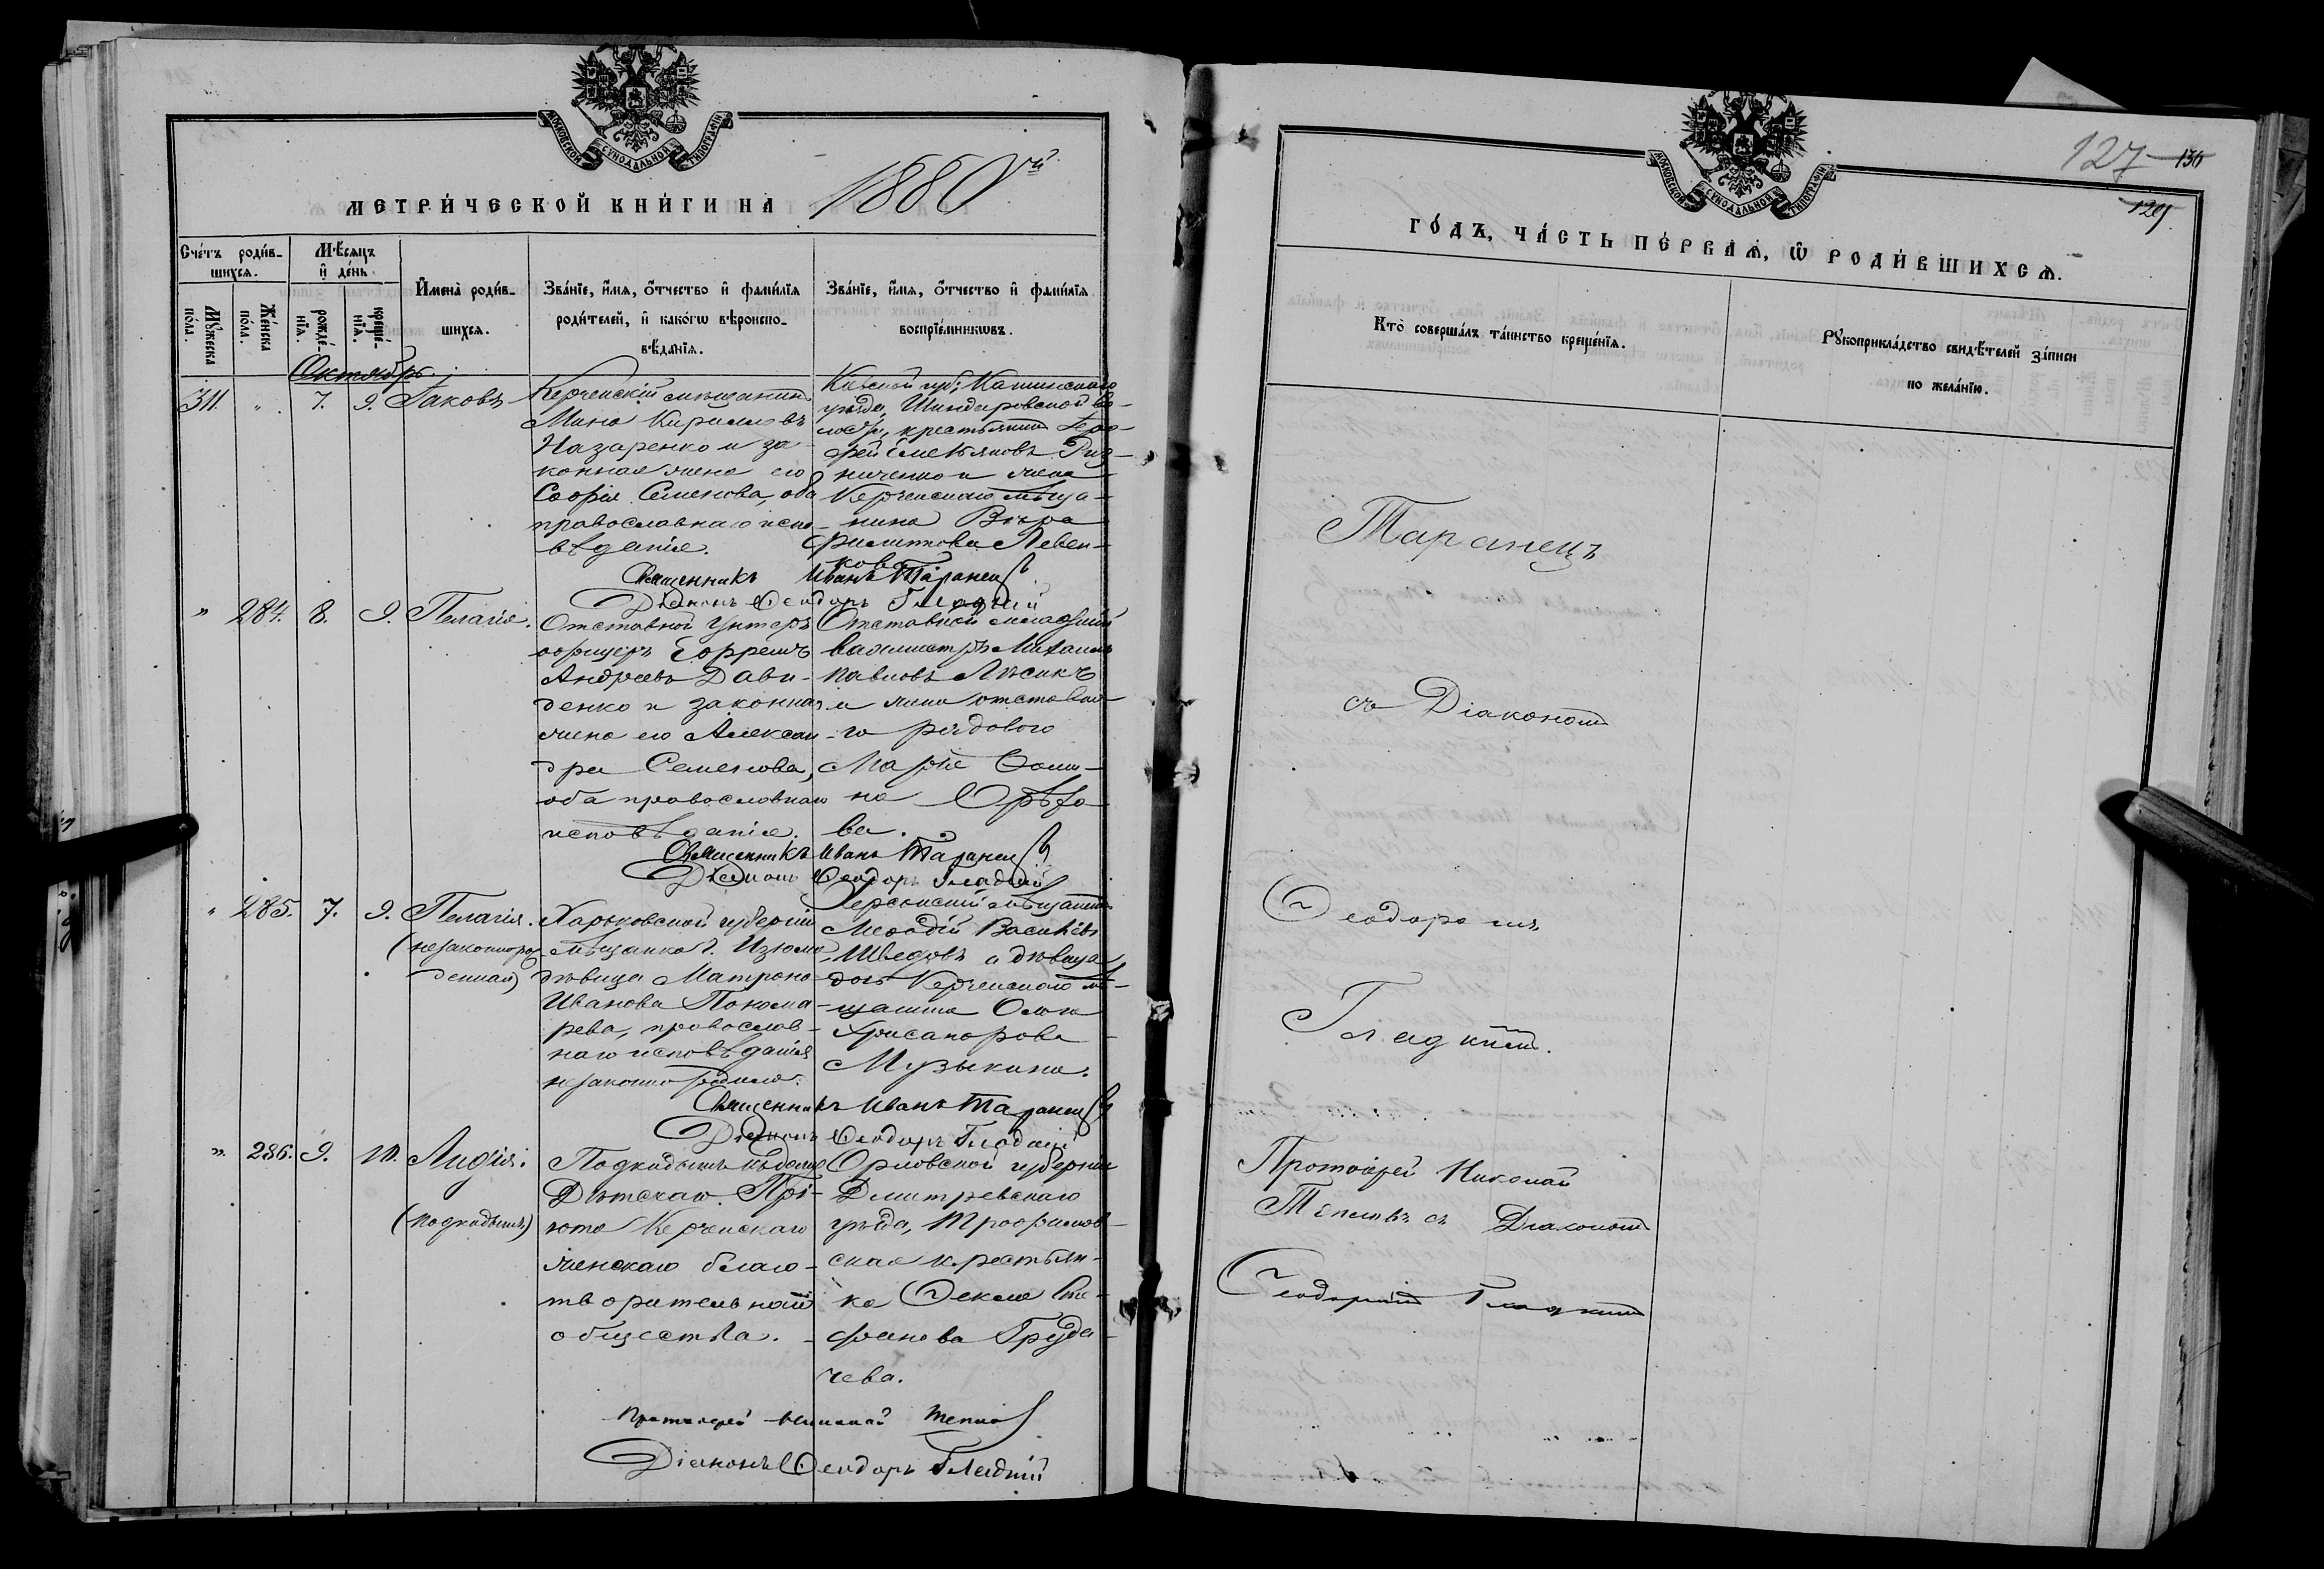 МОСКОВСКОЙ СУНОДАЛЬНОЙ ТИПОГРАФІИ
МЕТРИ́ЧЕСКОЙ КНИ́ГИ НА 1880ый
Сче́тъ роди́в-
шихсѧ.
Мѣ́сяцъ
и҆ де́нь
Мꙋ́жеска
по́ла.
Же́нска
по́ла.
рожде́-
нїѧ.
креще́-
нїѧ.
И҆мена̀ роди́в-
шихсѧ.
Зва́нїе, и҆́мя, ѻ҆́тчество и҆ фами́лїя
роди́телей, и҆ како́гѡ вѣроиспо-
вѣ́данїя.
Зва́нїе, и҆́мя, ѻ҆́тчество и҆ фами́лїя
воспрїе́мникѡвъ.
Октябрь.
311. " 7. 9. Іаковъ
Керченскій мѣщанинъ
Мина Кирилловъ
Назаренко и за-
конная жена его
Софія Семенова, оба
православнаго испо-
вѣданія.
Кіевской губ: Каневскаго
уѣзда, Шендеровской во-
лости, крестьянинъ
Емельяновъ
ниченко и жена
Керченскаго мѣща-
нина Вѣра
Филиппова Левен-
кова
Священникъ Иванъ Таранецъ
Діаконъ Ѳеодоръ Гладкій
" 284. 8. 9. Пелагія.
Отставной унтеръ
офицеръ
Андреевъ Дави-
денко и законная
жена его Алексан-
дра Семенова,
оба православнаго
исповѣданія.
Отставной младшій
вахмистръ Михаилъ
Павловъ Лѣсикъ
и жена отставна-
го рядового
Марѳа Ѳоми-
на Орѣхо-
ва.
Священникъ Иванъ Таранецъ
Діаконъ Ѳеодоръ Гладкій
" 285. 7. 9. Пелагія.
(незаконнорож-
денная)
Харьковской губерніи
мѣщанка г. Изюма
дѣвица Матрона
Иванова Понома-
рева, православ-
наго исповѣданія
незаконно родила.
Херсонскій мѣщанинъ
Меѳодій Васильевъ
Шведовъ и дѣвица
дочь Керченскаго мѣ-
щанина Ольга
Хрисанфова
Музыкина.
Священникъ Иванъ Таранецъ
Діаконъ Ѳеодоръ Гладкій
" 286. 9. 10. Лидія.
(подкидышъ)
Подкидышъ вѣдомства
Дѣтскаго Прі-
юта Керченскаго
женскаго благо-
творительнаго
общества.
Орловской губерніи
Дмитревскаго
уѣзда, Трофимов-
ская крестьян-
ка Ѳекла Сте-
фанова Груда-
чева.
Протоіерей Николай Тепловъ
Діаконъ Ѳеодоръ Гладкій
МОСКОВСКОЙ СУНОДАЛЬНОЙ ТИПОГРАФІИ
127 136
129
ГО́ДЪ, ЧА́СТЬ ПЕ́РВАѦ, Ѿ РОДИ́ВШИХСѦ.
Кто̀ соверша́лъ та́инство креще́нїя.
Рꙋкоприкла́дство свидѣ́телей за́писи
по жела́нїю.
Таранецъ
съ Діакономъ
Ѳеодоромъ
Гладкимъ.
Протоіерей Николай
Тепловъ съ Діакономъ
Ѳеодоромъ Гладкимъ